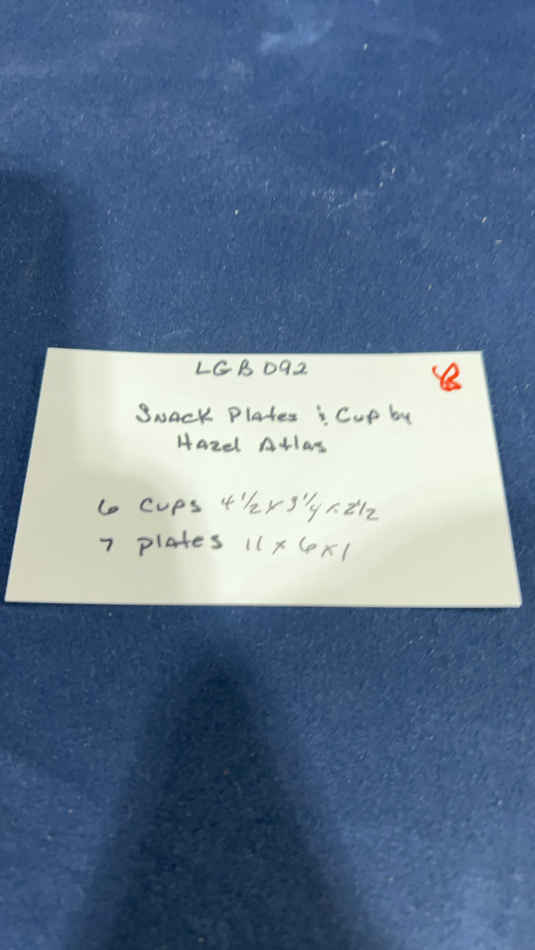 LGB 092
Snack Plates & Cup by
Hazel Atlas
6 cups 4 1/2 x 3 1/4 x 2 1/2
7 plates 11 x 6 x 1